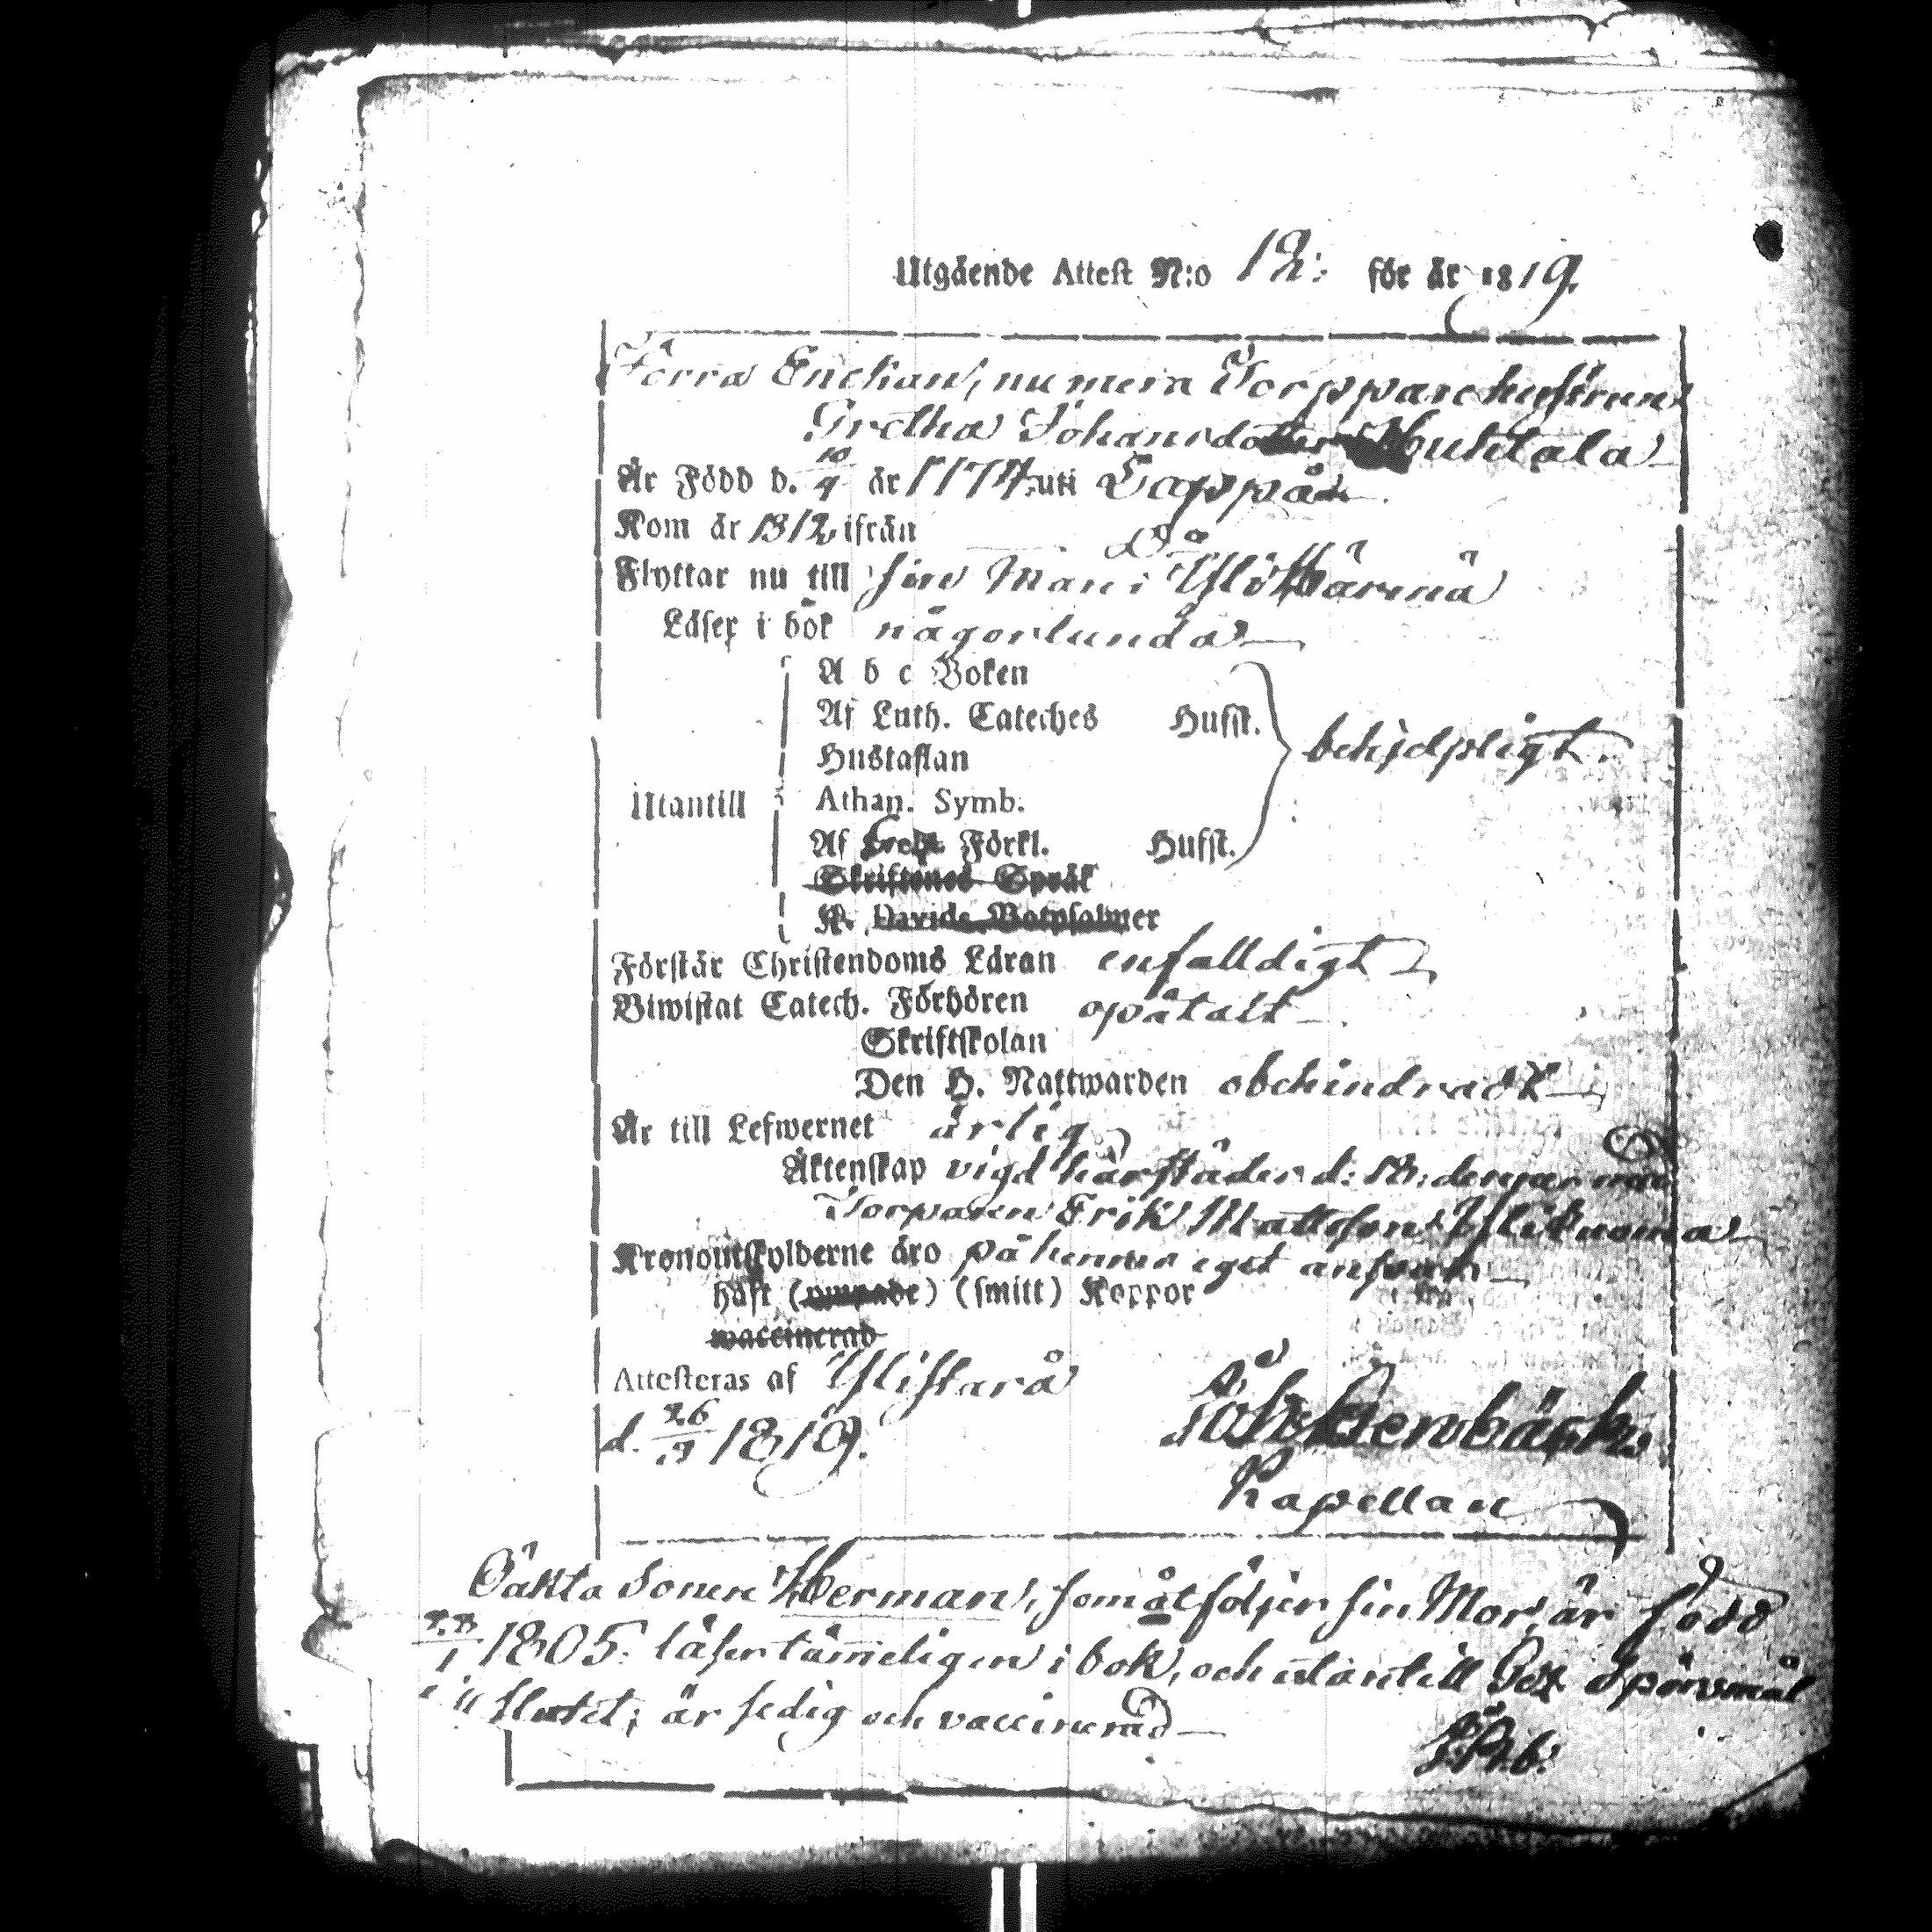 Utgående Attest N:o 12: för år 1819.
Förra Enckan, numera Torppare hustrun
Gretha Johansdotter Huhtala
Är Född d. 10/9 år 1774 uti Lappå
Kom år 1812 ifrån
Flyttar nu till sin Man i Ylihärmä
Läser i bok någorlunda
A b c Boken
Af Luth. Cateches Hufst.
Hustaflan
behjelpligt.
Utantill
Athan. Symb.
Af Förkl. Hufst.
Skriftenes Språk
K. Davids Botpsalmer
Förstår Christendoms Läran enfalldigt
Biwistat Catech. Förhören opåtalt
Skriftskolan
Den H. Nattwarden obehindradt
Är till Lefwernet ärlig
Äktenskap vigd härstädes d: 18: dennes med
Torparen Erik Mattsson
Kronoutskylderne äro på hennes eget ansvar
haft (smitt) Koppor
waccinerad
Attesteras af Ylistaro
d. 26/3 1819.
Kapellan
Oäkta Sonen Herman, som åtföljer sin Mor, är född
28/1 1805. läser tämmeligen i bok, och utantill Spörsmål
slutet; är sedig och vaccinerad